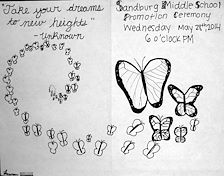 "Take your dreams
to new heights"
-unknown
Sandburg Middle School
Promotion Ceremony
Wednesday May 28th, 2014
6 o'clock PM